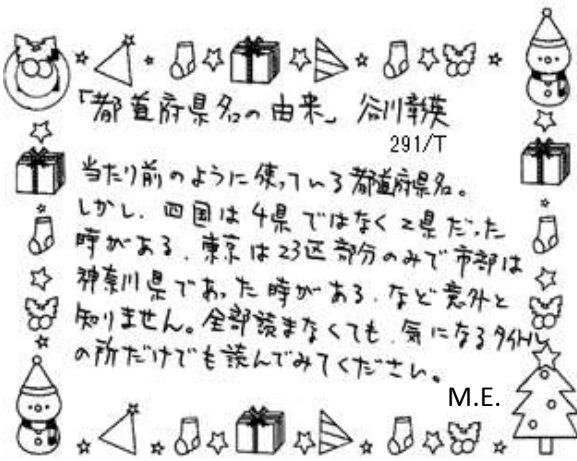 「都道府県名の由来」 谷川彰英
291/T
当たり前のように使っている都道府県名。
しかし、四国は4県ではなく2県だった
時がある、東京は23区部分のみで市部は
神奈川県であった時がある、など意外と
知りません。全部読まなくても、気になるタイトル
の所だけでも読んでみてください。
M.E.